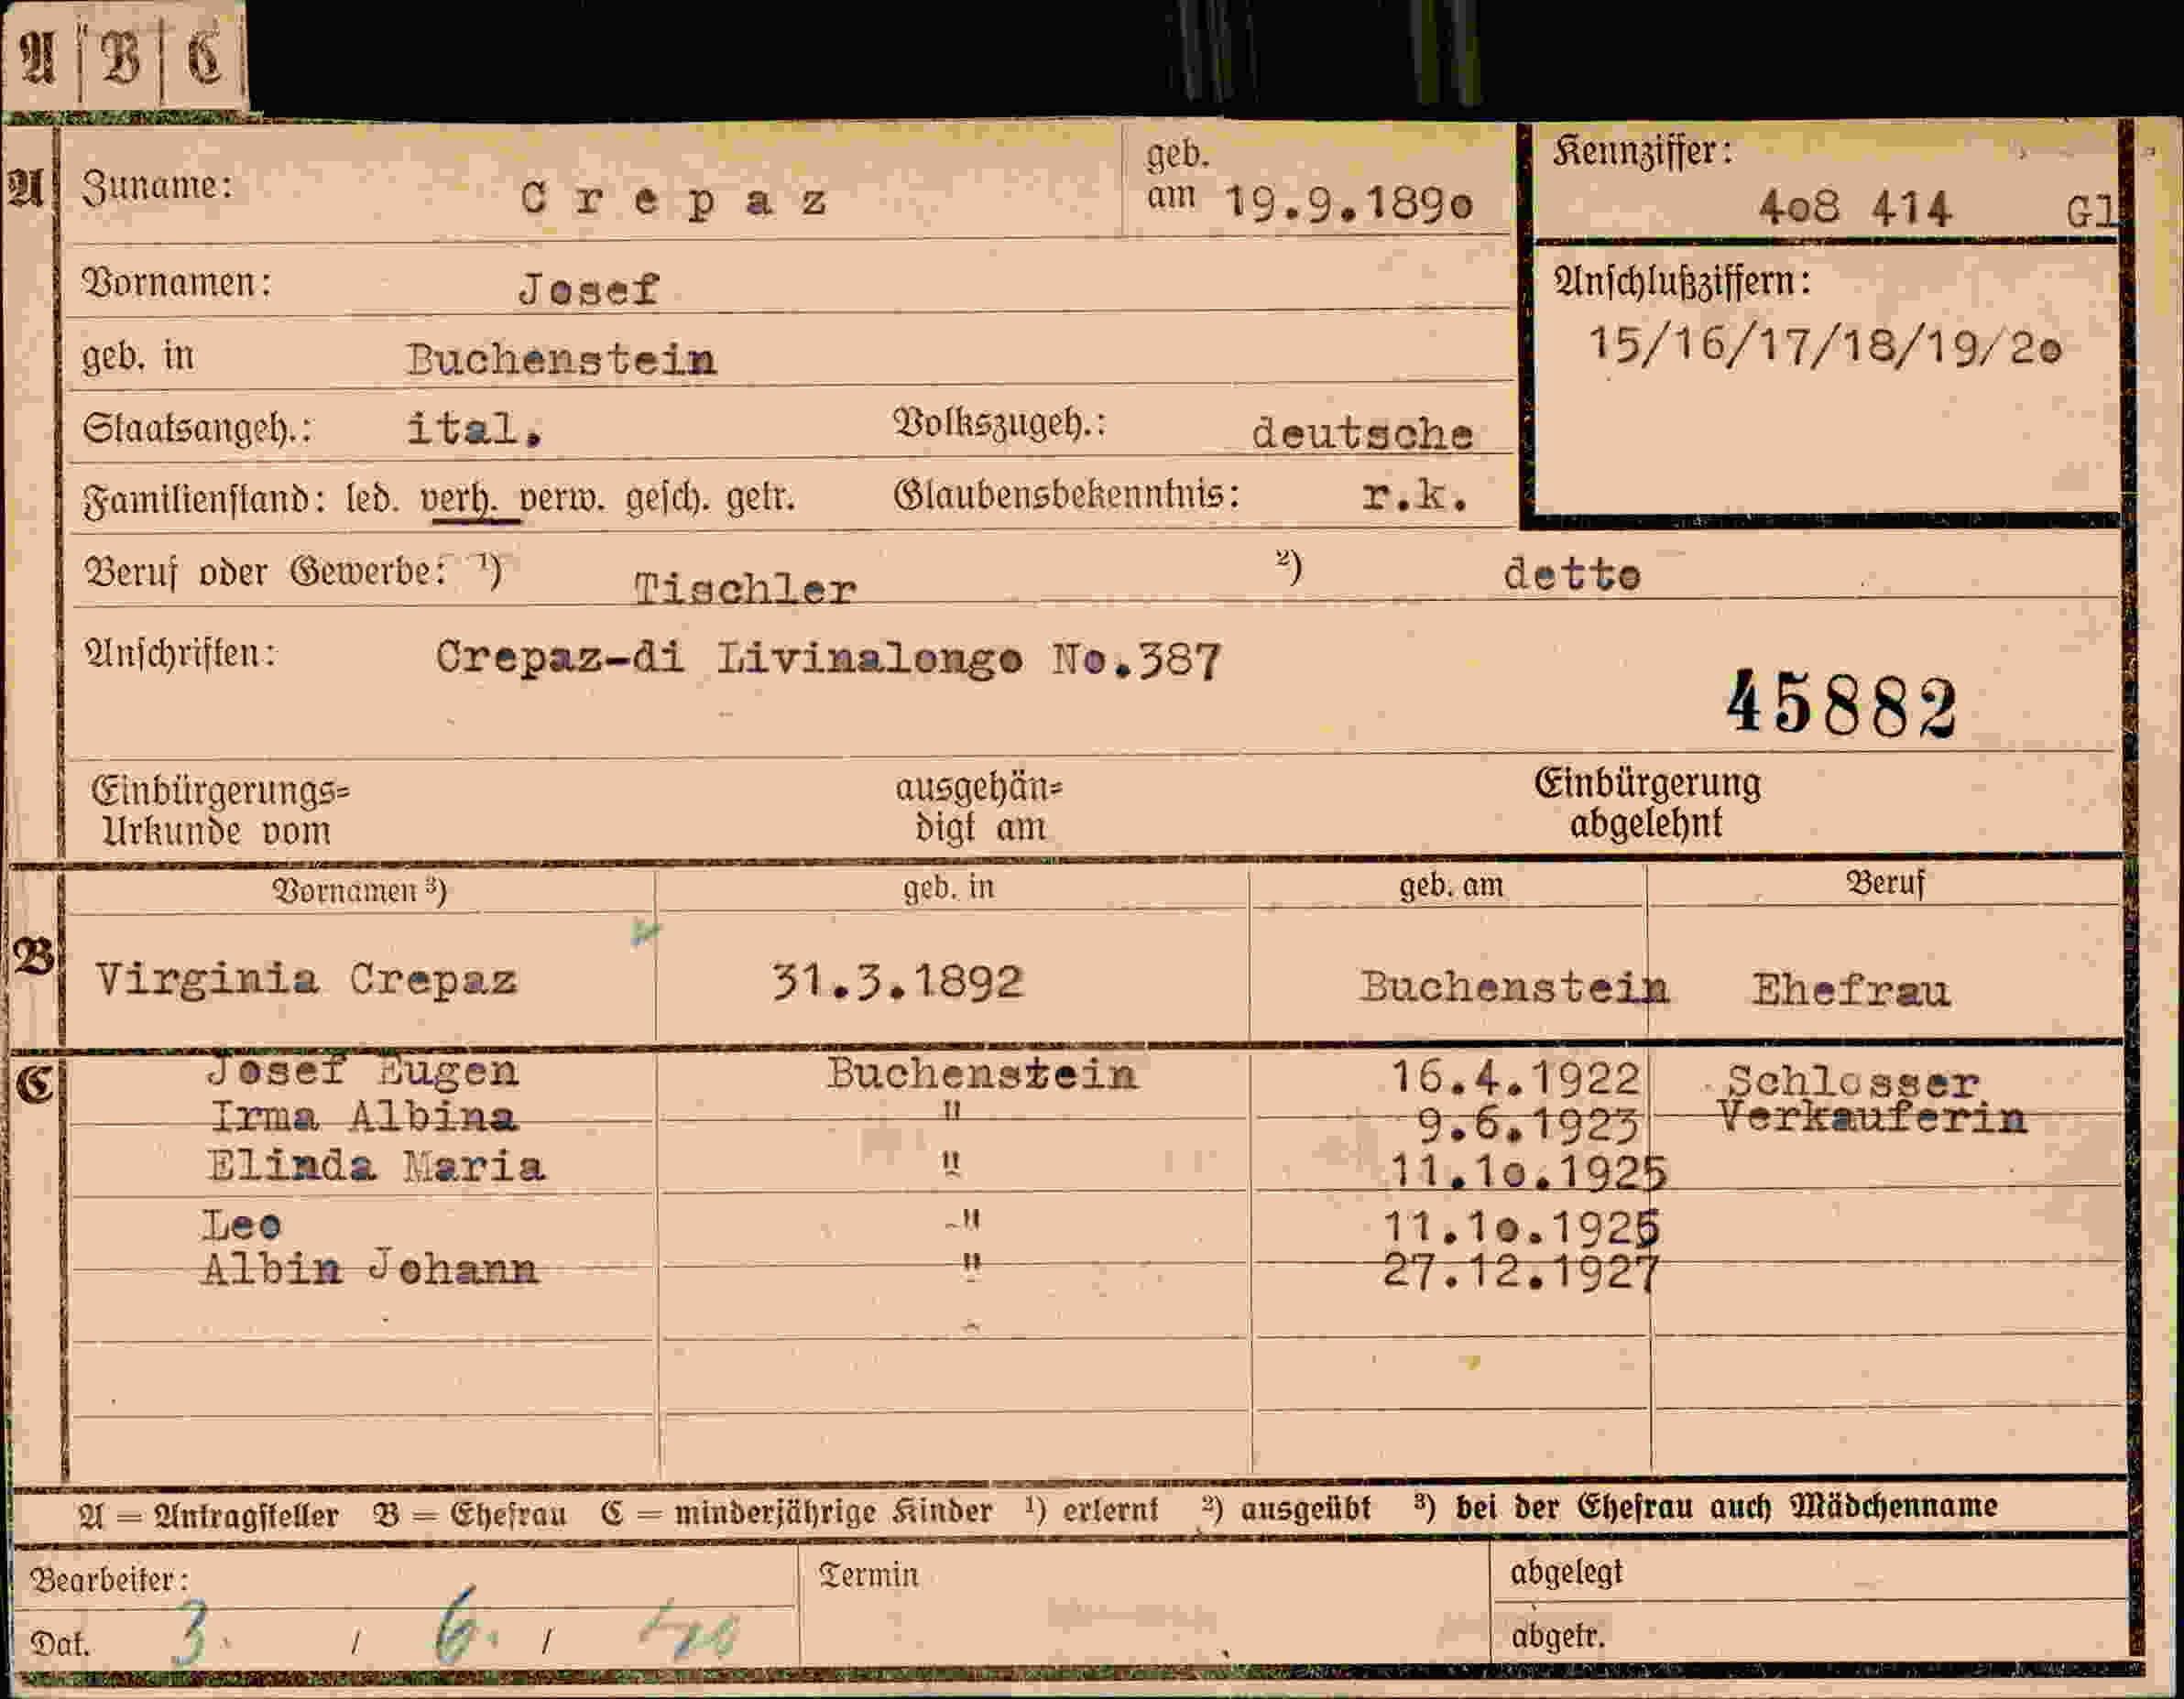 A | B | C
A Zuname: Crepaz geb. am 19.9.1890 Kennziffer: 408 414 Gl
Vornamen: Josef Anschlußziffern:
15/16/17/18/19/20
geb. in Buchenstein
Staatsangeh.: ital. Volkszugeh.: deutsche
Familienstand: led. verh. verw. gesch. getr. Glaubensbekenntnis: r.k.
Beruf oder Gewerbe: ¹) Tischler ²) detto
Anschriften: Crepaz-di Livinalongo No.387
45882
Einbürgerungs= ausgehän= Einbürgerung
Urkunde vom digt am abgelehnt
Vornamen ³) geb. in geb. am Beruf
B Virginia Crepaz 31.3.1892 Buchenstein Ehefrau
C Josef Eugen Buchenstein 16.4.1922 Schlosser
Irma Albina " 9.6.1923 Verkauferin
Elinda Maria " 11.10.1925
Leo -" 11.10.1925
Albin Johann " 27.12.1927
A = Antragsteller B = Ehefrau C = minderjährige Kinder ¹) erlernt ²) ausgeübt ³) bei der Ehefrau auch Mädchenname
Bearbeiter: Termin abgelegt
Dat. 3. / 6. / 40 abgetr.